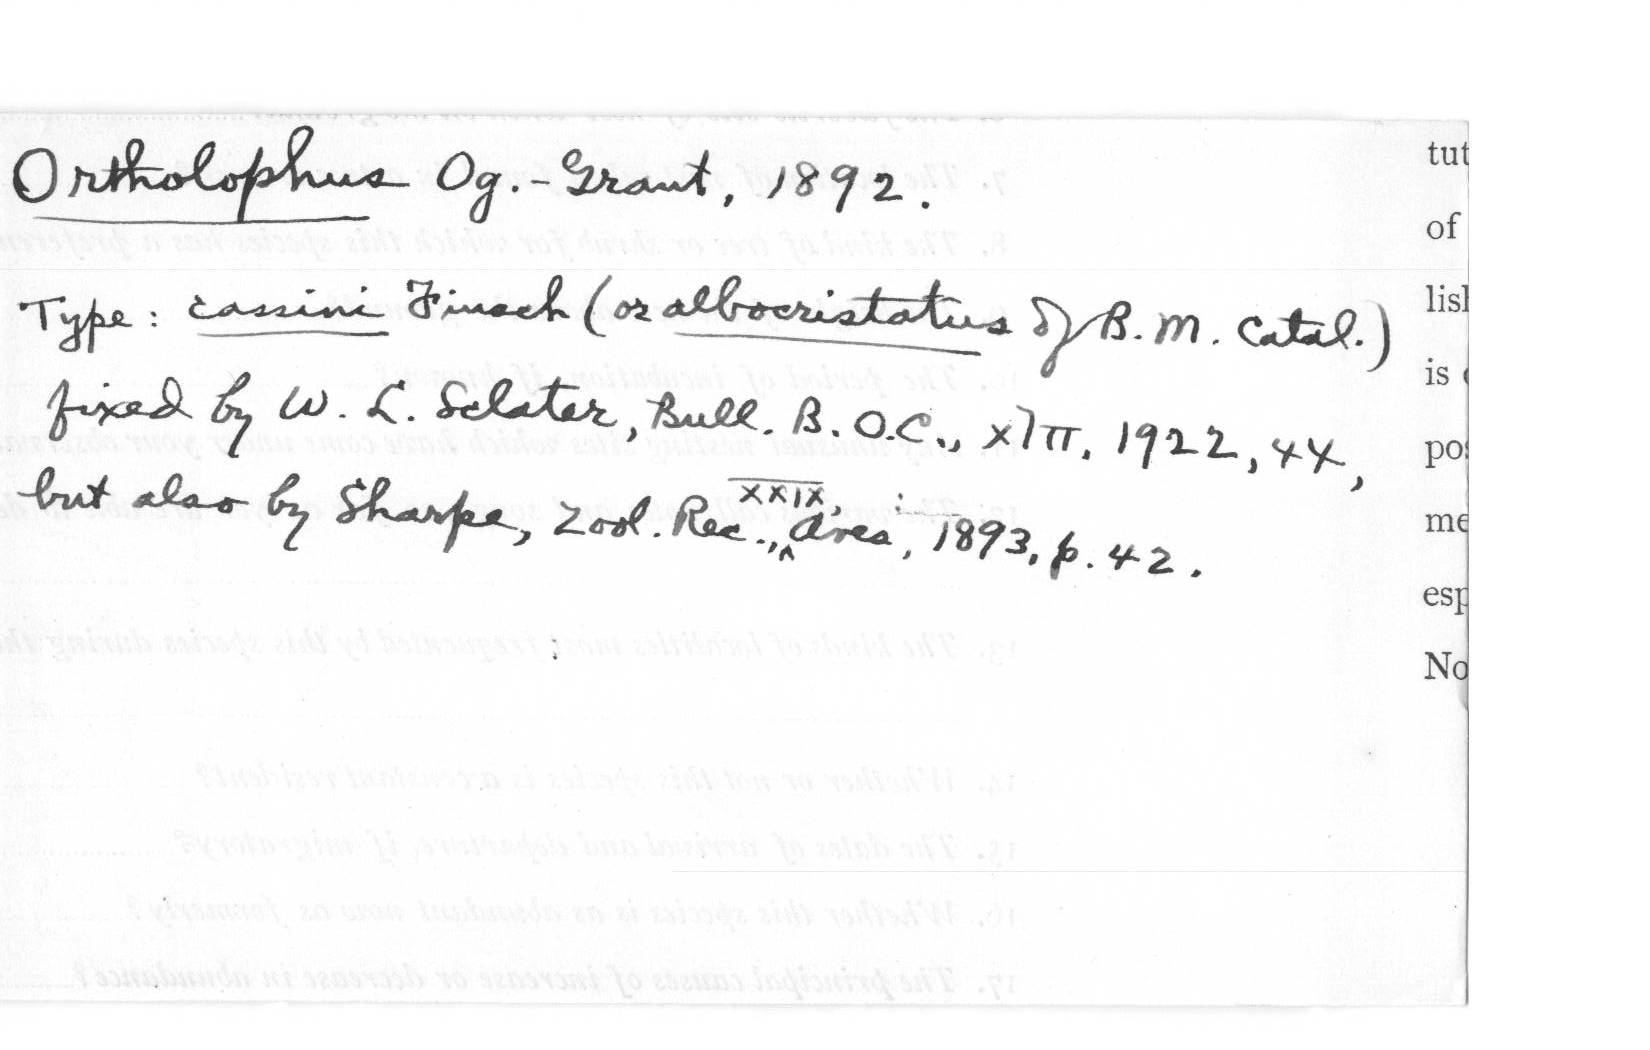 Ortholophus Og.-Grant, 1892.
Type: cassini Finsch (or albocristatus of B.M. Catal.)
fixed by W. L. Sclater, Bull. B.O.C., xlII, 1922, 44,
but also by Sharpe, Zool. Rec., XXIX, Aves, 1893, p. 42.
tut
of
lis
is
pos
me
esp
No